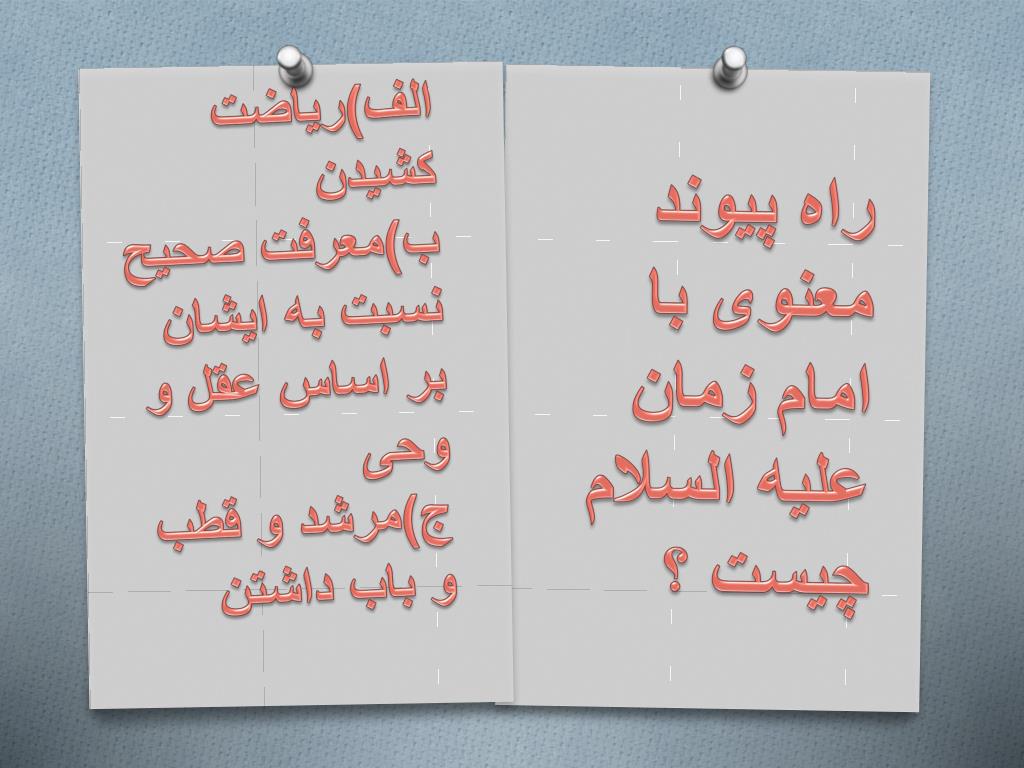 راه پیوند
معنوی با
امام زمان
علیه السلام
چیست ؟
الف)ریاضت
کشیدن
ب)معرفت صحیح
نسبت به ایشان
بر اساس عقل و
وحی
ج)مرشد و قطب
و باب داشتن